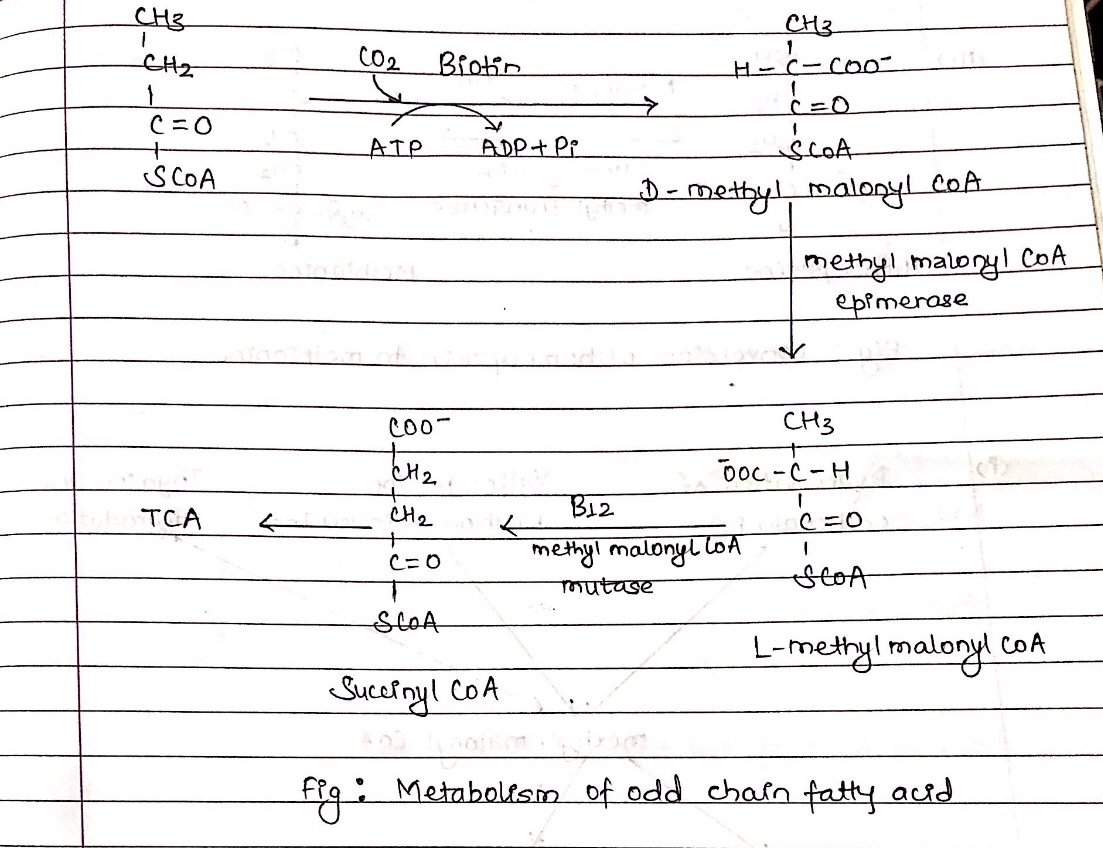 CH3
CH2
C=O
SCoA
CO2 Biotin
ATP ADP+Pi
CH3
H-C-COO⁻
C=O
SCoA
D-methyl malonyl CoA
methyl malonyl CoA
epimerase
CH3
⁻OOC-C-H
C=O
SCoA
L-methyl malonyl CoA
B12
methyl malonyl CoA
mutase
COO⁻
CH2
CH2
C=O
SCoA
Succinyl CoA
TCA
Fig: Metabolism of odd chain fatty acid